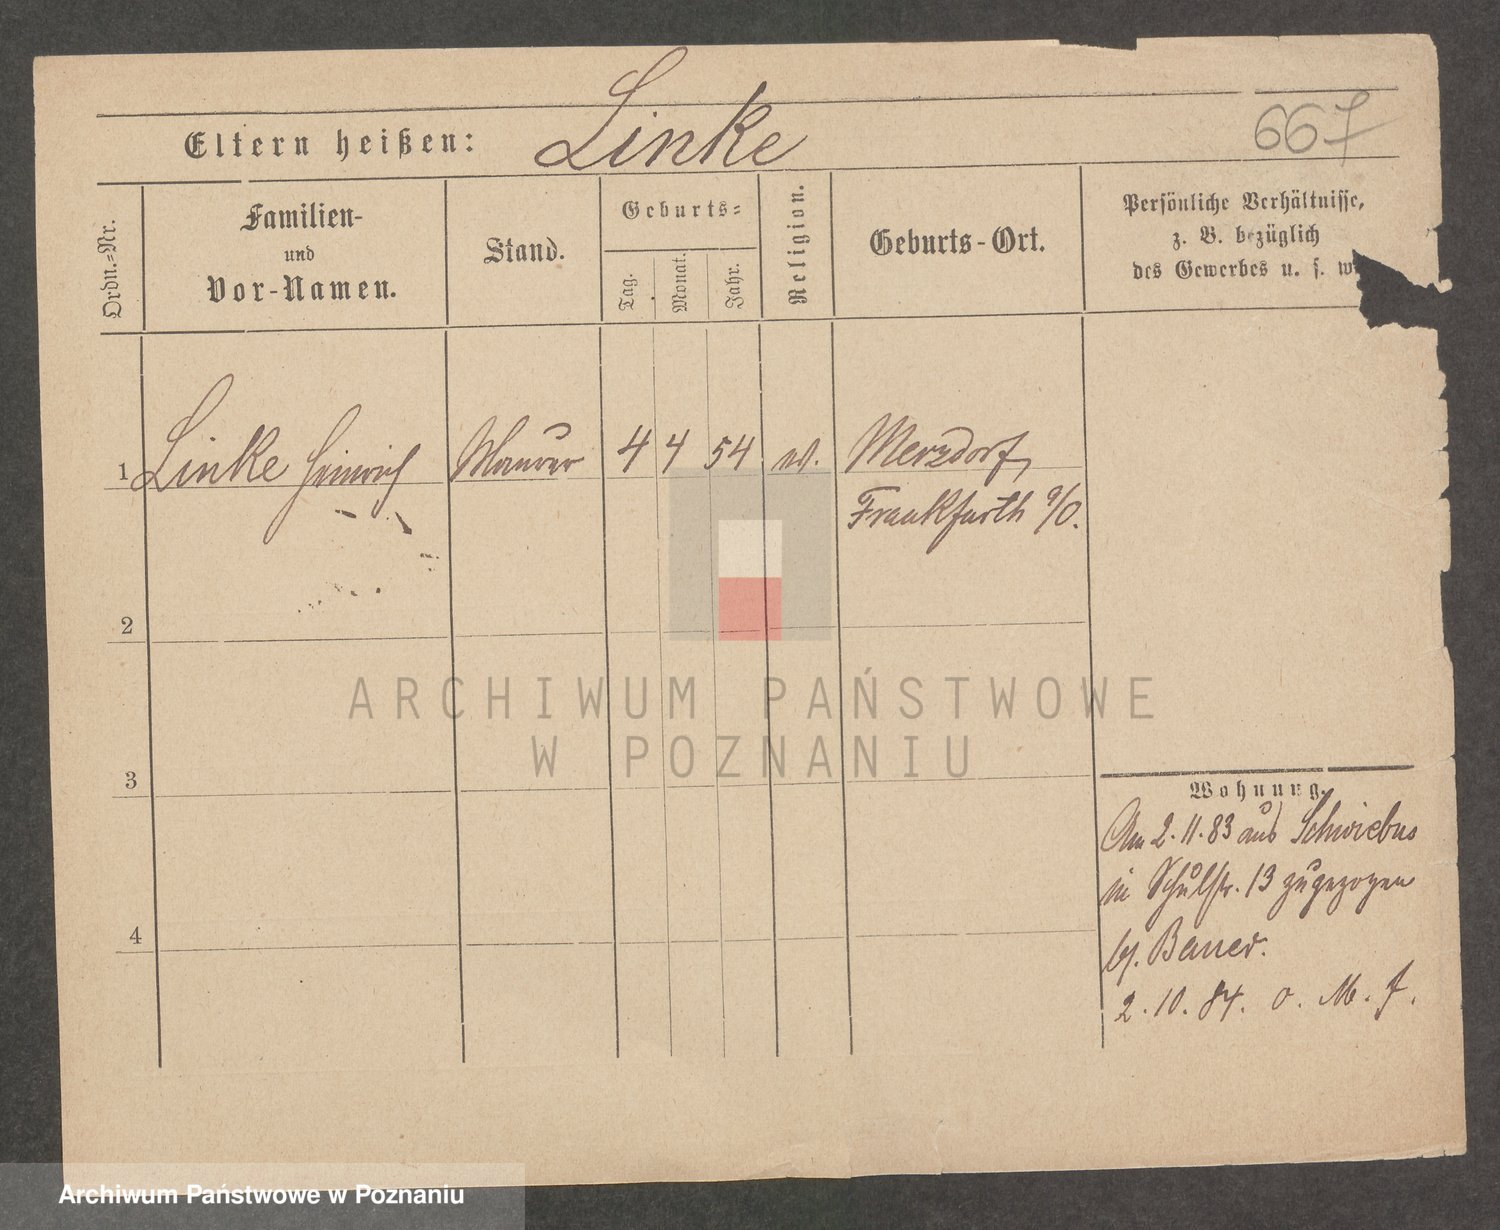 Eltern heißen: Linke
667
Ordn.=Nr.
Familien-
und
Vor-Namen.
Stand.
Geburts=
Tag.
Monat.
Jahr.
Religion.
Geburts-Ort.
Persönliche Verhältnisse,
z. B. bezüglich
des Gewerbes u. s. w.
1 Linke Heinrich Maurer 4 4 54 ev. Merzdorf,
Frankfurth a/O.
2
3
4
Wohnung.
Am 2.11.83 aus Schwiebus
in Schulstr. 13 zugezogen
bj. Bauer.
2.10.84. o. M. f.
ARCHIWUM PAŃSTWOWE
W POZNANIU
Archiwum Państwowe w Poznaniu